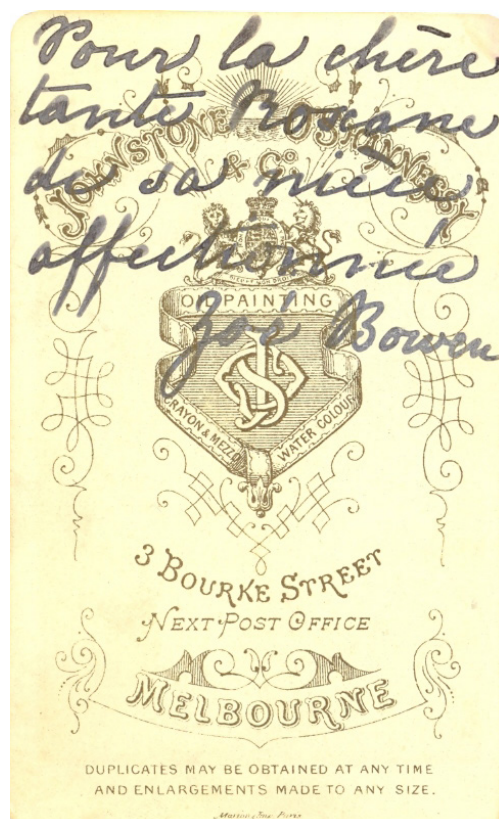 Pour la chère
tante Roxane
de sa nièce
affectionnée
Zoé Bowen
JOHNSTONE O'SHANNESSY
& Co
OIL PAINTING
CRAYON & MEZZO
WATER COLOUR
JS
3 BOURKE STREET
NEXT POST OFFICE
MELBOURNE
DUPLICATES MAY BE OBTAINED AT ANY TIME
AND ENLARGEMENTS MADE TO ANY SIZE.